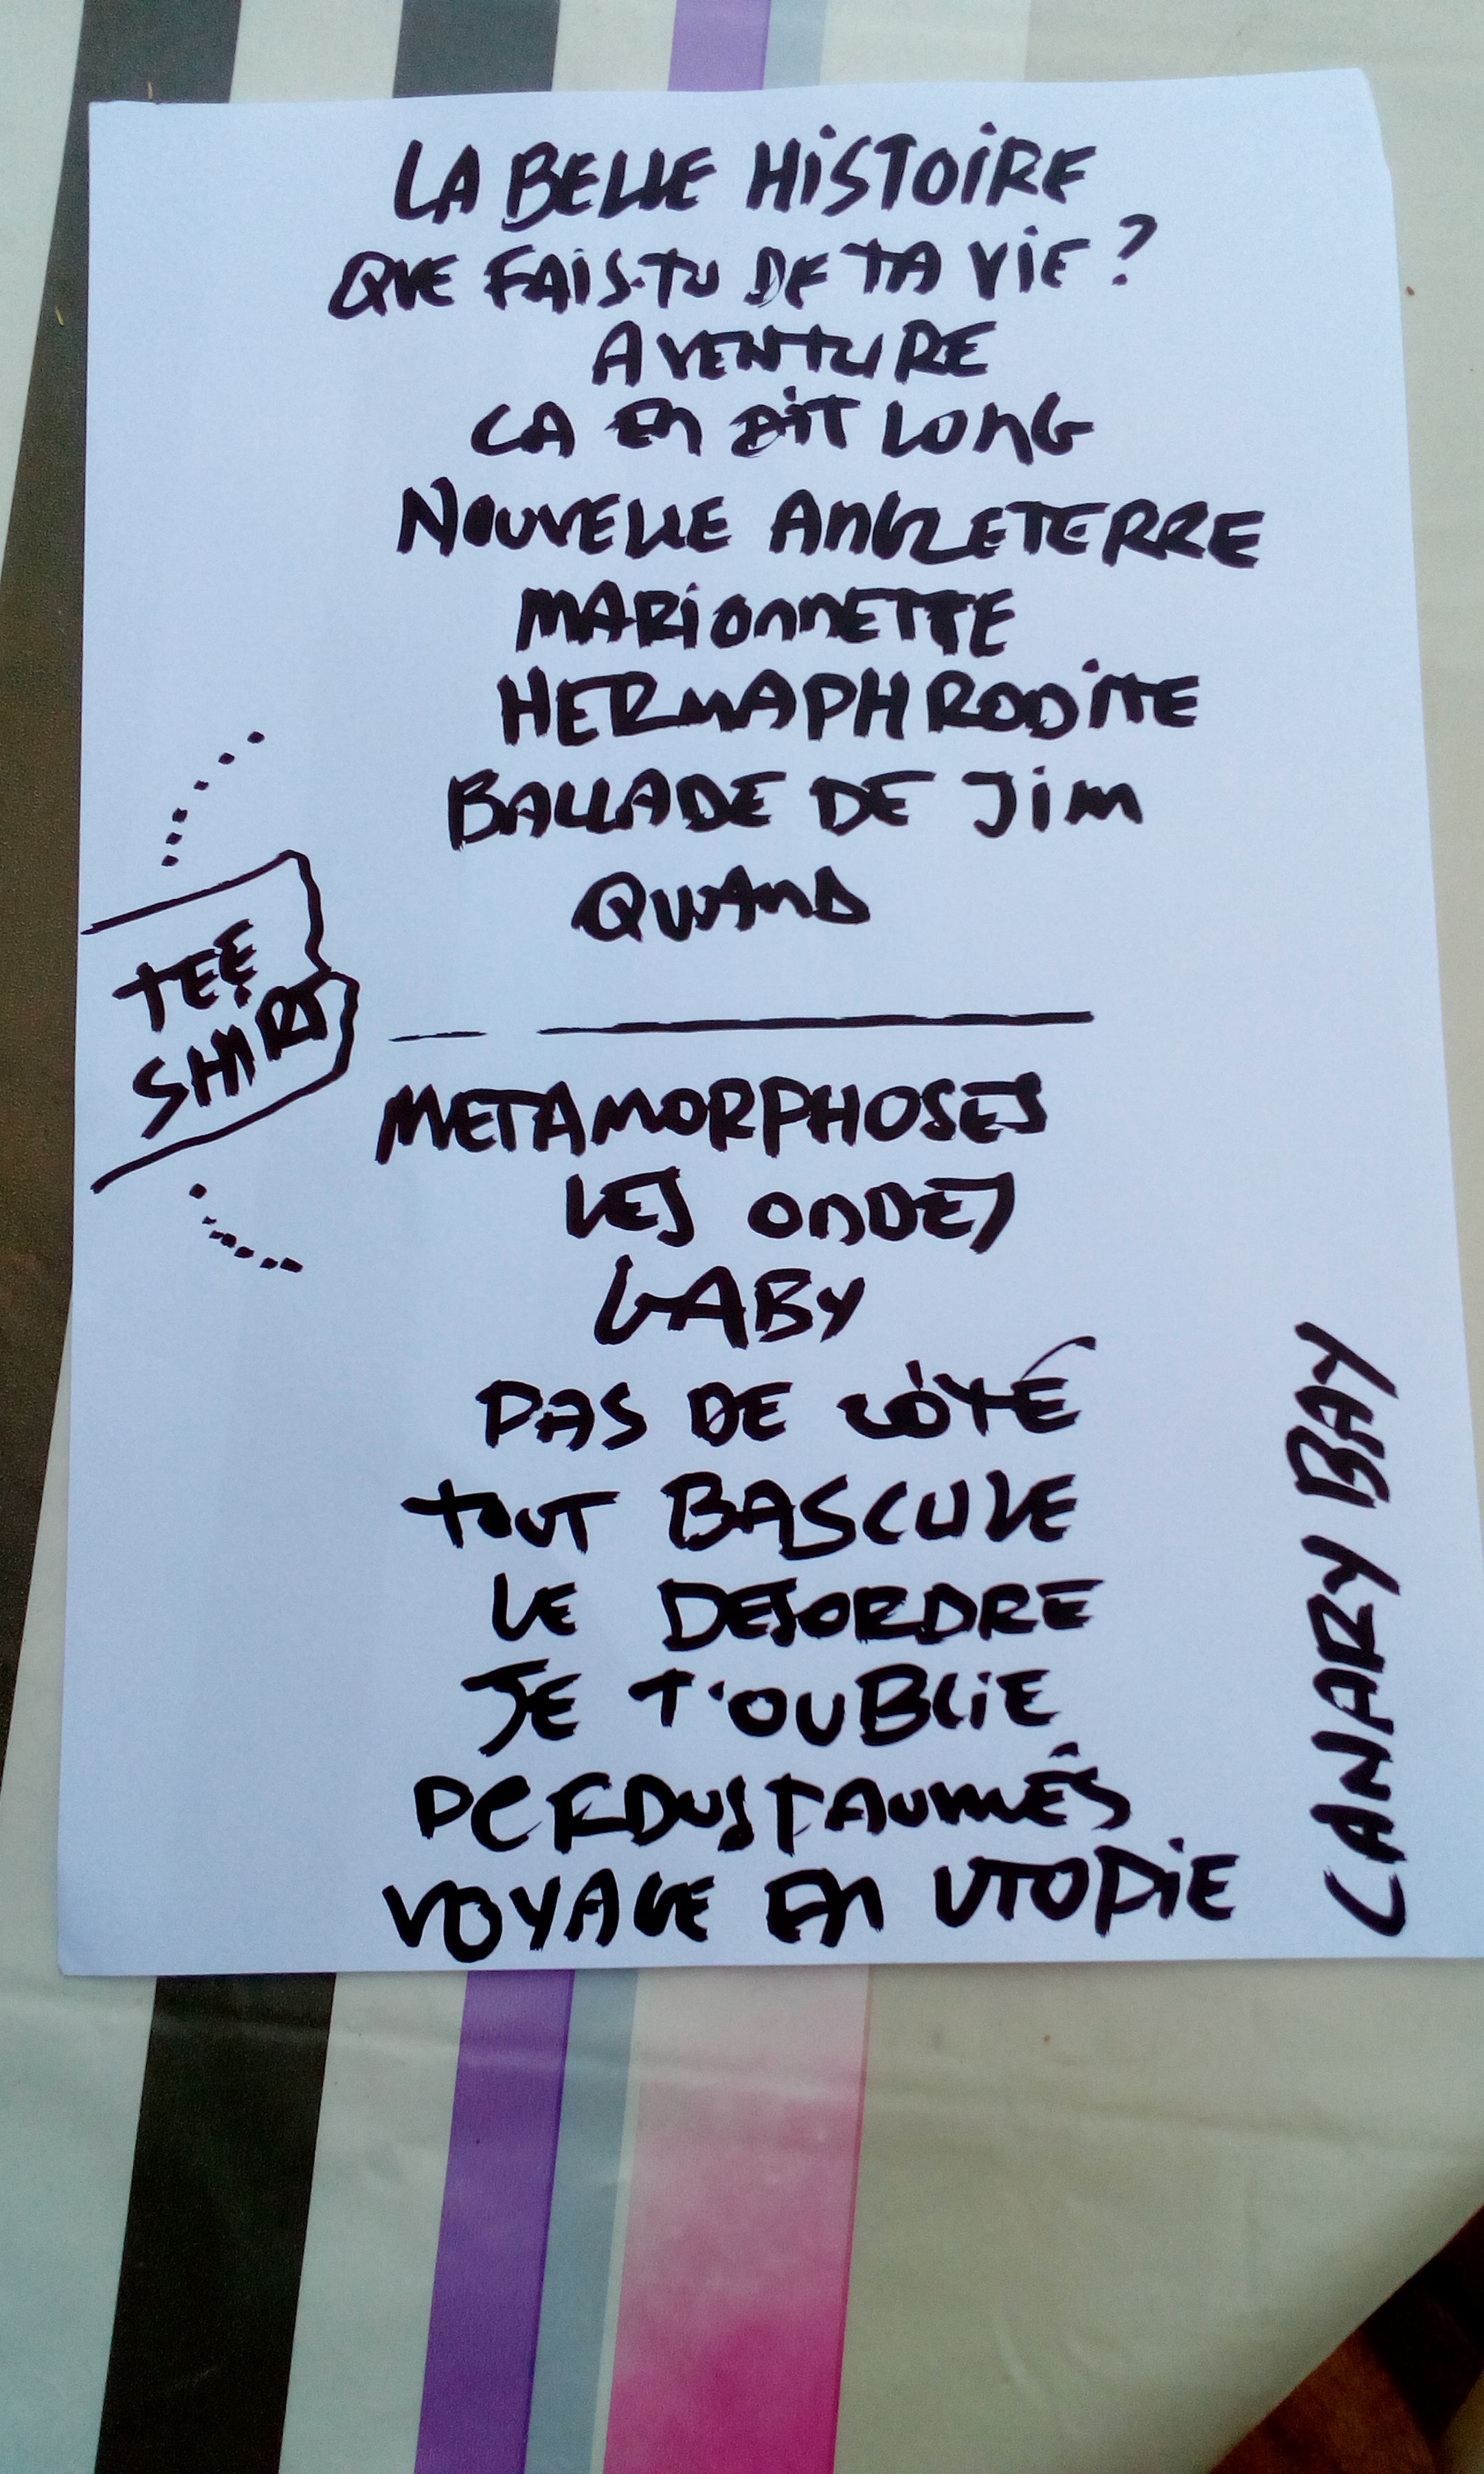 LA BELLE HiSTOiRE
QUE FAiS-TU DE TA ViE ?
AVENTURE
CA En DiT LOnG
NOUVELLE AnGLETERRE
MARiOnnETTE
HERMAPHRODiTE
BALLADE DE JiM
QUAnD
TEE
SHIRT
METAMORPHOSES
LES OnDES
GABY
PAS DE CÔTÉ
TOUT BASCULE
LE DESORDRE
JE T'OUBLiE
PERDUS PAUMÉS
VOYAGE En UTOPiE
CANARY BAY